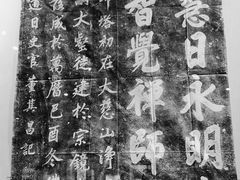 慧日永明
智覺禪師
塔初在大慈山淨
大壑徙建於宗鏡
成於萬曆己酉冬
日史官董其昌記